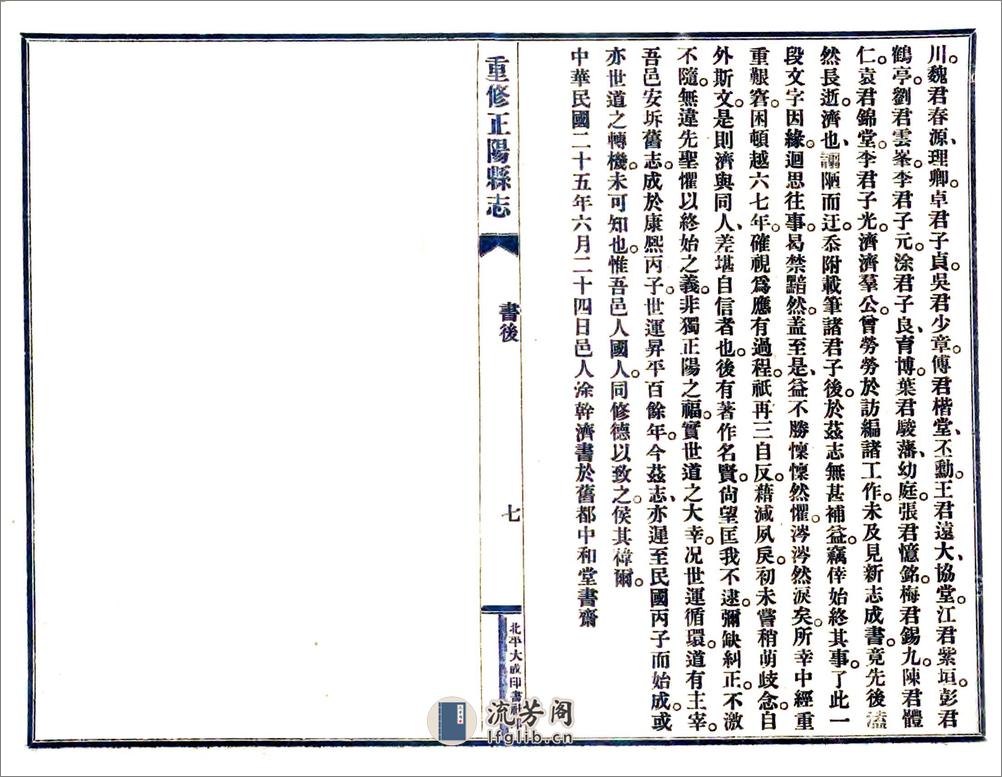 川。魏君春源、理卿。卓君子貞。吳君少章。傅君楷堂、丕勳。王君遠大、協堂。江君紫垣。彭君
鶴亭。劉君雲峯。李君子元。涂君子良、育博。葉君駿藩、幼庭。張君憶銘。梅君錫九。陳君體
仁。袁君錦堂。李君子光。濟濟羣公。曾勞勞於訪編諸工作。未及見新志成書。竟先後溘
然長逝。濟也、謭陋而迂。忝附載筆諸君子後。於茲志無甚補益。竊倖始終其事。了此一
段文字因緣。迴思往事。曷禁黯然。蓋至是、益不勝懍懍然懼。涔涔然淚矣。所幸中經重
重艱窘。困頓越六七年。確視爲應有過程。祇再三自反。藉減夙戾。初未嘗稍萌歧念。自
外斯文。是則濟與同人、差堪自信者也。後有著作名賢。尚望匡我不逮。彌缺糾正。不激
不隨。無違先聖懼以終始之義。非獨正陽之福。實世道之大幸。况世運循環。道有主宰。
吾邑安圻舊志。成於康熙丙子。世運昇平百餘年。今茲志、亦遲至民國丙子而始成。或
亦世道之轉機。未可知也。惟吾邑人國人。同修德以致之。俟其禕爾。
中華民國二十五年六月二十四日邑人涂幹濟書於舊都中和堂書齋
重修正陽縣志
書後
七
北平大成印書社
流芳阁
lfglib.cn